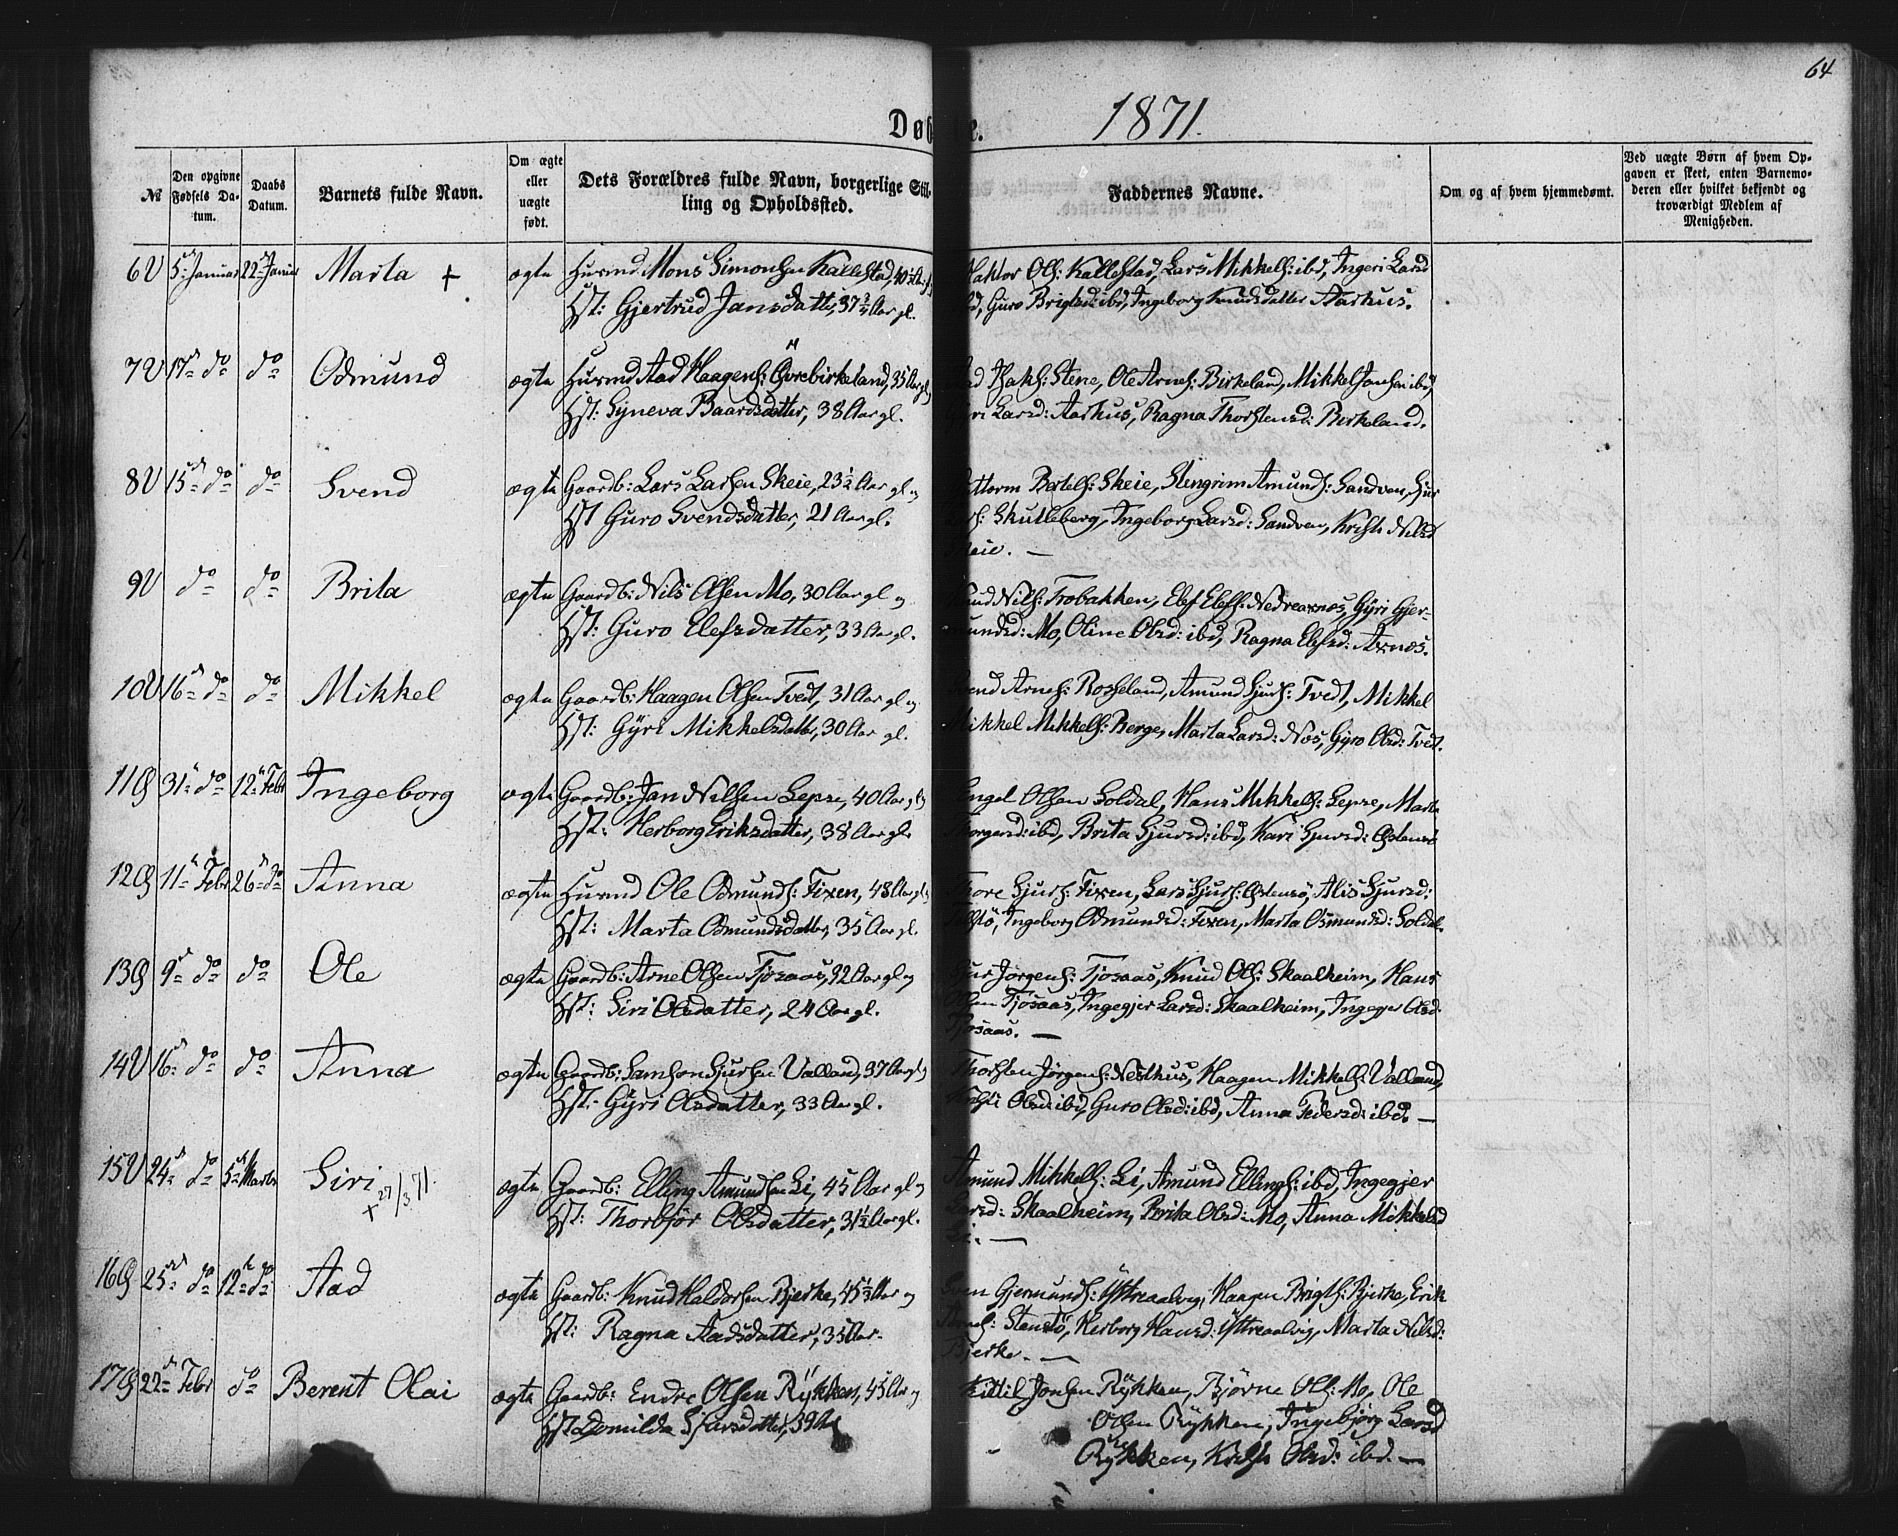 64
1871.
Døb e.
№
Den opgivne Fødsels Datum.
Daabs Datum.
Barnets fulde Navn.
Om ægte eller uægte født.
Dets Forældres fulde Navn, borgerlige Stilling og Opholdssted.
Faddernes Navne.
Om og af hvem hjemmedømt.
Ved uægte Børn af hvem Opgaven er skeet, enten Barnemoderen eller hvilket bekjendt og troværdigt Medlem af Menigheden.
6 U 5te Januar 22de Januar Marta + ægte Husmd Mons Simonsen Kallestad, 40½ Aar gl. og
Hst: Gjertrud Jansdatter, 37 Aar gl.
Ols: Kallestad, Lars Mikkels: ibd, Ingeri Larsd
ibd, Guro Brigtsd: ibd, Ingeborg Knudsdatter Aarhus.
7 U 17de do do Odmund ægte Husmd Aad Haagens: Øvrebirkeland, 35 Aar gl. og
Hst: Syneva Baardsdatter, 38 Aar gl.
Stene, Ole Arnes: Birkeland, Mikkel Jansen ibd,
Larsd: Aarhus, Ragna Thorstensd: Birkeland.
8 U 15de do do Svend ægte Gaardb: Lars Larsen Skeie, 23½ Aar gl og
Hst Guro Svendsdatter, 21 Aar gl.
Guttorm Bertels: Skeie, Stengrim Amunds: Sandven, Sjur
Skutleberg, Ingeborg Larsd: Sandven, Kristi Nilsd
Skeie. —
9 U do do Brita ægte Gaardb: Nils Olsen Mo, 30 Aar gl og
Hst: Guro Elefsdatter, 33 Aar gl.
Knud Nils: Trobakken, Elef Elefs: Nedreaxnes, Gyri Gjer-
mundsd: Mo, Oline Olsd: ibd, Ragna Elefsd: Axnes.
10 U 16de do do Mikkel ægte Gaardb: Haagen Olsen Tvedt, 31 Aar gl og
Hst: Gyri Mikkelsdatter, 30 Aar gl.
Svend Arnes: Rosseland, Amund Sjurs: Tvedt, Mikkel
Mikkel Mikkels: Berge, Marta Larsd: Nes, Gyro Olsd: Tvedt.
11 G 31te do 12te Febr Ingeborg ægte Gaardb: Jan Nilsen Lepse, 40 Aar gl og
Hst: Herborg Eriksdatter, 38 Aar gl.
Engel Olsen Soldal, Hans Mikkels: Lepse, Marta
Thorgersd: ibd, Brita Sjursd: ibd, Kari Sjursd: Østensø
12 G 11te Febr 26de do Anna ægte Husmd Ole Odmunds: Fixen, 48 Aar gl og
Hst: Marta Odmundsdatter, 35 Aar gl.
Thore Sjurs: Fixen, Lars Sjurs: Østensø, Alis Sjursd:
Ingeborg Odmundsd: Fixen, Marta Osmundsd: Soldal.
13 G 9de do do Ole ægte Gaardb: Arne Olsen Tjosaas, 42 Aar gl og
Hst: Siri Olsdatter, 24 Aar gl.
Sjur Jørgens: Tjosaas, Knud Ols: Skaalheim, Hans
Olsen Tjosaas, Ingegjer Larsd: Skaalheim, Ingegjer Olsd:
Tjosaas. —
14 U 16de do do Anna ægte Gaardb: Samson Sjursen Valland, 37 Aar gl og
Hst: Gyri Olsdatter, 33 Aar gl.
Thorsten Jørgens: Nesthus, Haagen Mikkels: Valland,
Kristi Olsd: ibd, Guro Olsd: ibd, Anna Pedersd: ibd. —
15 U 24de do 5te Marts Siri + 27/3 71. ægte Gaardb: Elling Amundsen Li, 45 Aar gl og
Hst: Thorbjør Olsdatter, 31½ Aar gl.
Amund Mikkels: Li, Amund Ellings: ibd, Ingegjer
Larsd: Skaalheim, Brita Olsd: Mo, Anna Mikkelsd
Li. —
16 G 25de do 12te do Aad ægte Gaardb: Knud Haldorsen Bjerke, 45½ Aar og
Hst: Ragna Aadsdatter, 35 Aar.
Sven Gjermunds: Ystreaalvig, Haagen Brigts: Bjerke, Erik
Arnes: Stensø, Herborg Hansd: Ystreaalvig, Marta Nilsd:
Bjerke. —
17 G 22de Febr do Berent Olai ægte Gaardb: Endre Olsen Rykken, 45 Aar og
Hst Domilda Sjursdatter, 39 Aar
Kittil Jonsen Rykken, Bjørne Ols: Mo, Ole
Olsen Rykken, Ingebjørg Larsd
Rykken, Kristi Olsd: ibd. —